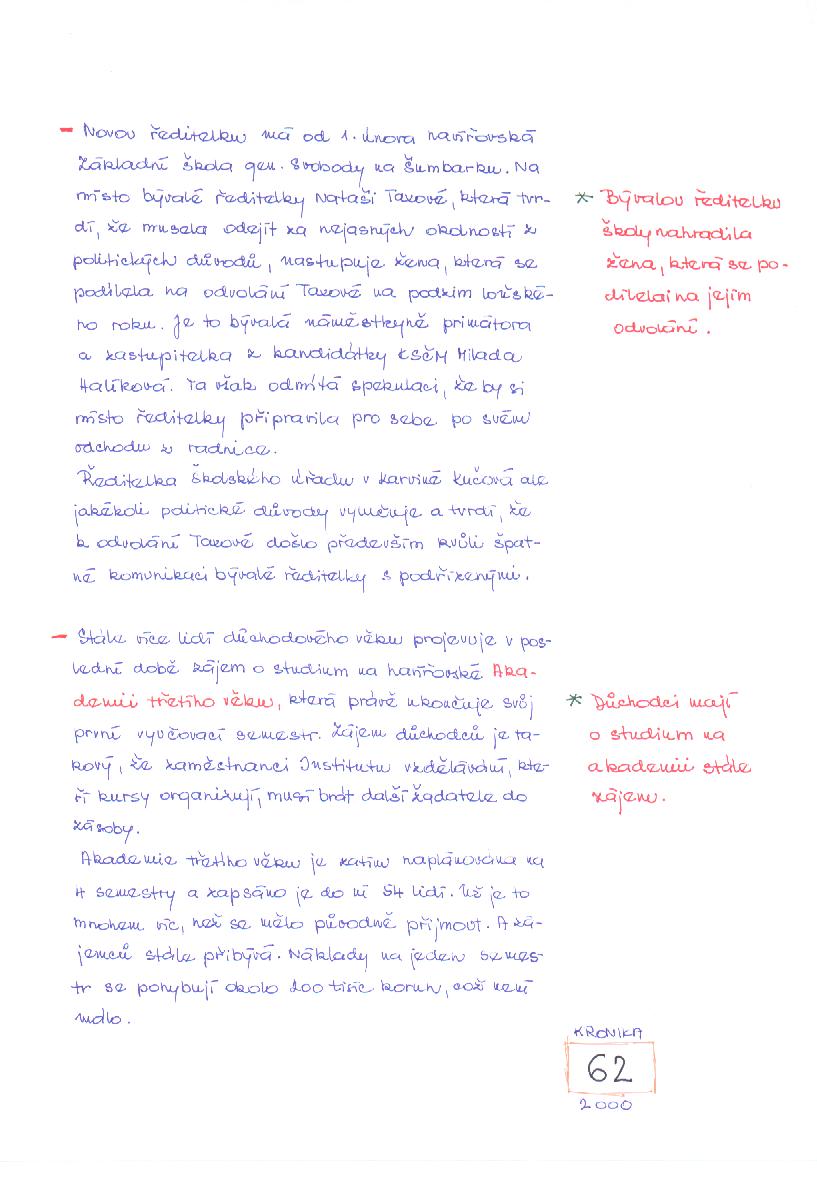 – Novou ředitelku má od 1. února havířovská
Základní škola gen. Svobody na Šumbarku. Na
místo bývalé ředitelky Nataši Taxové, která tvr-
dí, že musela odejít za nejasných okolností z
politických důvodů, nastupuje žena, která se
podílela na odvolání Taxové na podzim loňské-
ho roku. Je to bývalá náměstkyně primátora
a zastupitelka z kandidátky KSČM Milada
Halíková. Ta však odmítá spekulaci, že by si
místo ředitelky připravila pro sebe po svém
odchodu z radnice.
Ředitelka školského úřadu v Karviné Kučová ale
jakékoli politické důvody vylučuje a tvrdí, že
k odvolání Taxové došlo především kvůli špat-
né komunikaci bývalé ředitelky s podřízenými.
* Bývalou ředitelku
školy nahradila
žena, která se po-
dílela i na jejím
odvolání.
– Stále více lidí důchodového věku projevuje v pos-
lední době zájem o studium na havířovské Aka-
demii třetího věku, která právě ukončuje svůj
první vyučovací semestr. Zájem důchodců je ta-
kový, že zaměstnanci Institutu vzdělávání, kte-
ří kursy organizují, musí brát další žadatele do
zásoby.
Akademie třetího věku je zatím naplánována na
4 semestry a zapsáno je do ní 54 lidí. Už je to
mnohem víc, než se mělo původně přijmout. A zá-
jemců stále přibývá. Náklady na jeden semes-
tr se pohybují okolo 200 tisíc korun, což není
málo.
* Důchodci mají
o studium na
akademii stále
zájem.
KRONIKA
62
2000